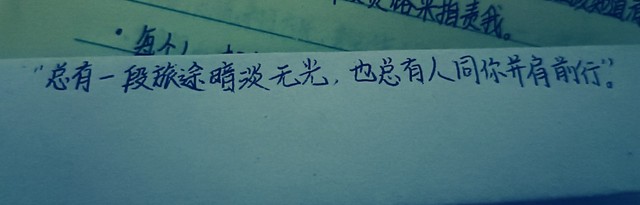 来指责我。
每个人
“总有一段旅途暗淡无光，也总有人同你并肩前行”。